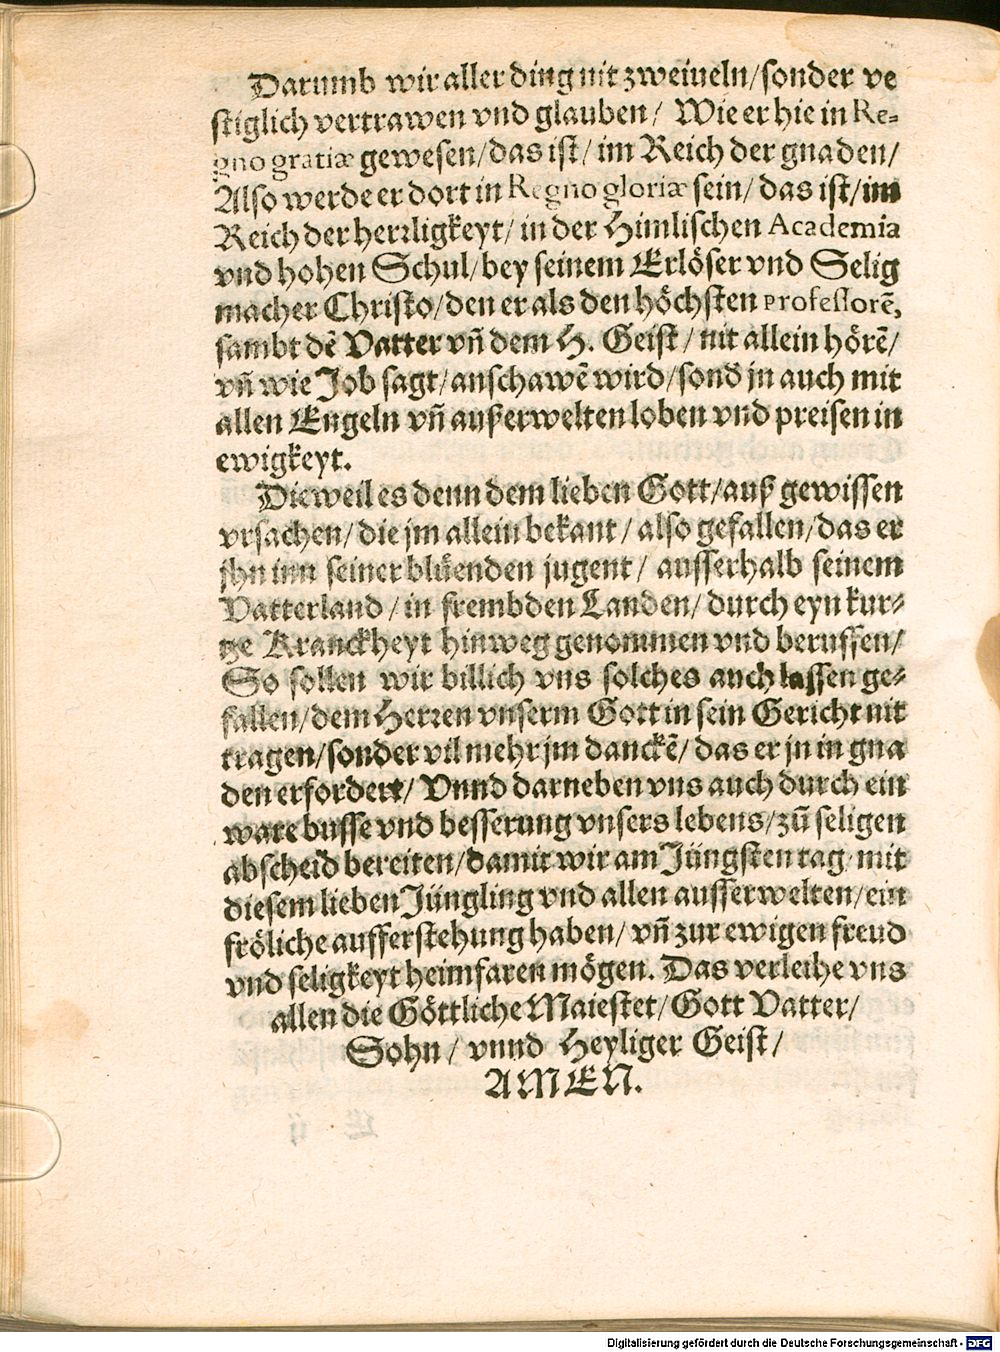 Darumb wir aller ding nit zweiueln/sonder ve
stiglich vertrawen vnd glauben/ Wie er hie in Re-
gno gratiæ gewesen/das ist/ im Reich der gnaden/
Also werde er dort in Regno gloriæ sein/ das ist/im
Reich der herꝛligkeyt/ in der Himlischen Academia
vnd hohen Schul/bey seinem Erlöser vnd Selig
macher Christo/den er als den höchsten Professorē,
sambt dē Vatter vñ dem H. Geist/ nit allein hörē/
vñ wie Job sagt/anschawē wird/sond̄ jn auch mit
allen Engeln vñ außerwelten loben vnd preisen in
ewigkeyt.
Dieweil es denn dem lieben Gott/auß gewissen
vrsachen/die jm allein bekant/ also gefallen/das er
jhn inn seiner blüenden jugent/ ausserhalb seinem
Vatterland/in frembden Landen/durch eyn kur-
tze Kranckheyt hinweg genommen vnd beruffen/
So sollen wir billich vns solches auch lassen ge-
fallen/dem Herꝛen vnserm Gott in sein Gericht nit
tragen/sonder vil mehr jm danckē/das er jn in gna
den erfordert/ Vnnd darneben vns auch durch ein
ware busse vnd besserung vnsers lebens/zů seligen
abscheid bereiten/damit wir am Jüngsten tag mit
diesem lieben Jüngling vnd allen ausserwelten/ein
fröliche aufferstehung haben/ vñ zur ewigen freud
vnd seligkeyt heimfaren mögen. Das verleihe vns
allen die Göttliche Maiestet/Gott Vatter/
Sohn/ vnnd Heyliger Geist/
AMEN.
Digitalisierung gefördert durch die Deutsche Forschungsgemeinschaft - DFG